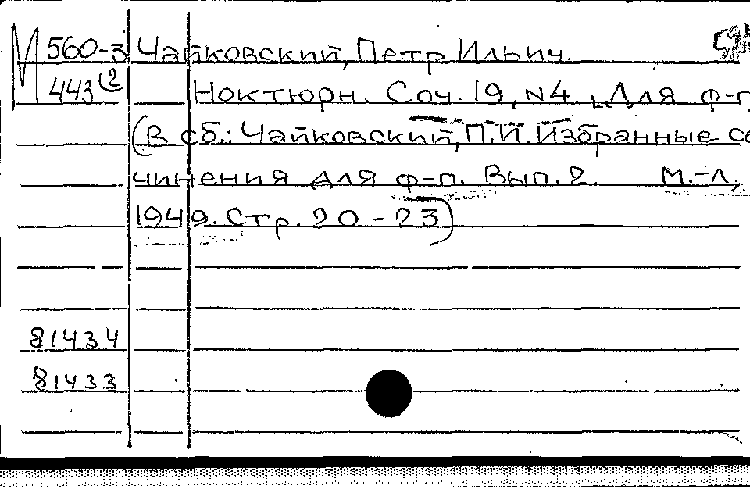 М 560-3 Чайковский, Петр Ильич
443(2 Ноктюрн. Соч. 19, N4. Для ф-п.
(В сб.: Чайковский, П.И. Избранные со-
чинения для ф-п. Вып. 2. М.-Л.,
1949. Стр. 20-23)
81434
81433